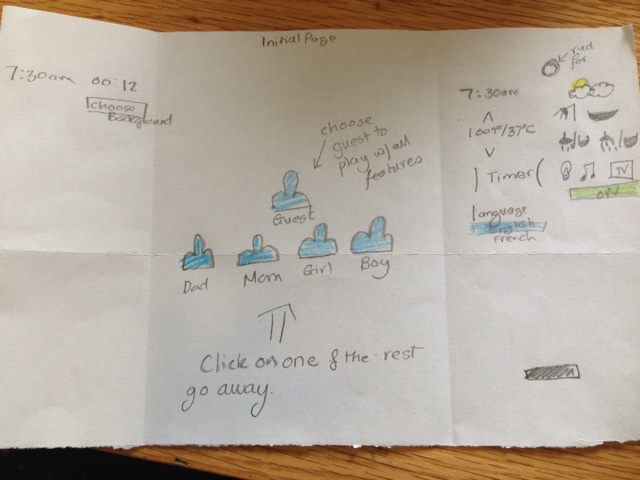 Initial Page
7:30am 00:12
Choose
Background
choose
guest to
play w/all
features
Guest
Dad Mom Girl Boy
Click on one & the rest
go away.
for
7:30am
100°F/37°C
Timer
TV
ON
language
English
French